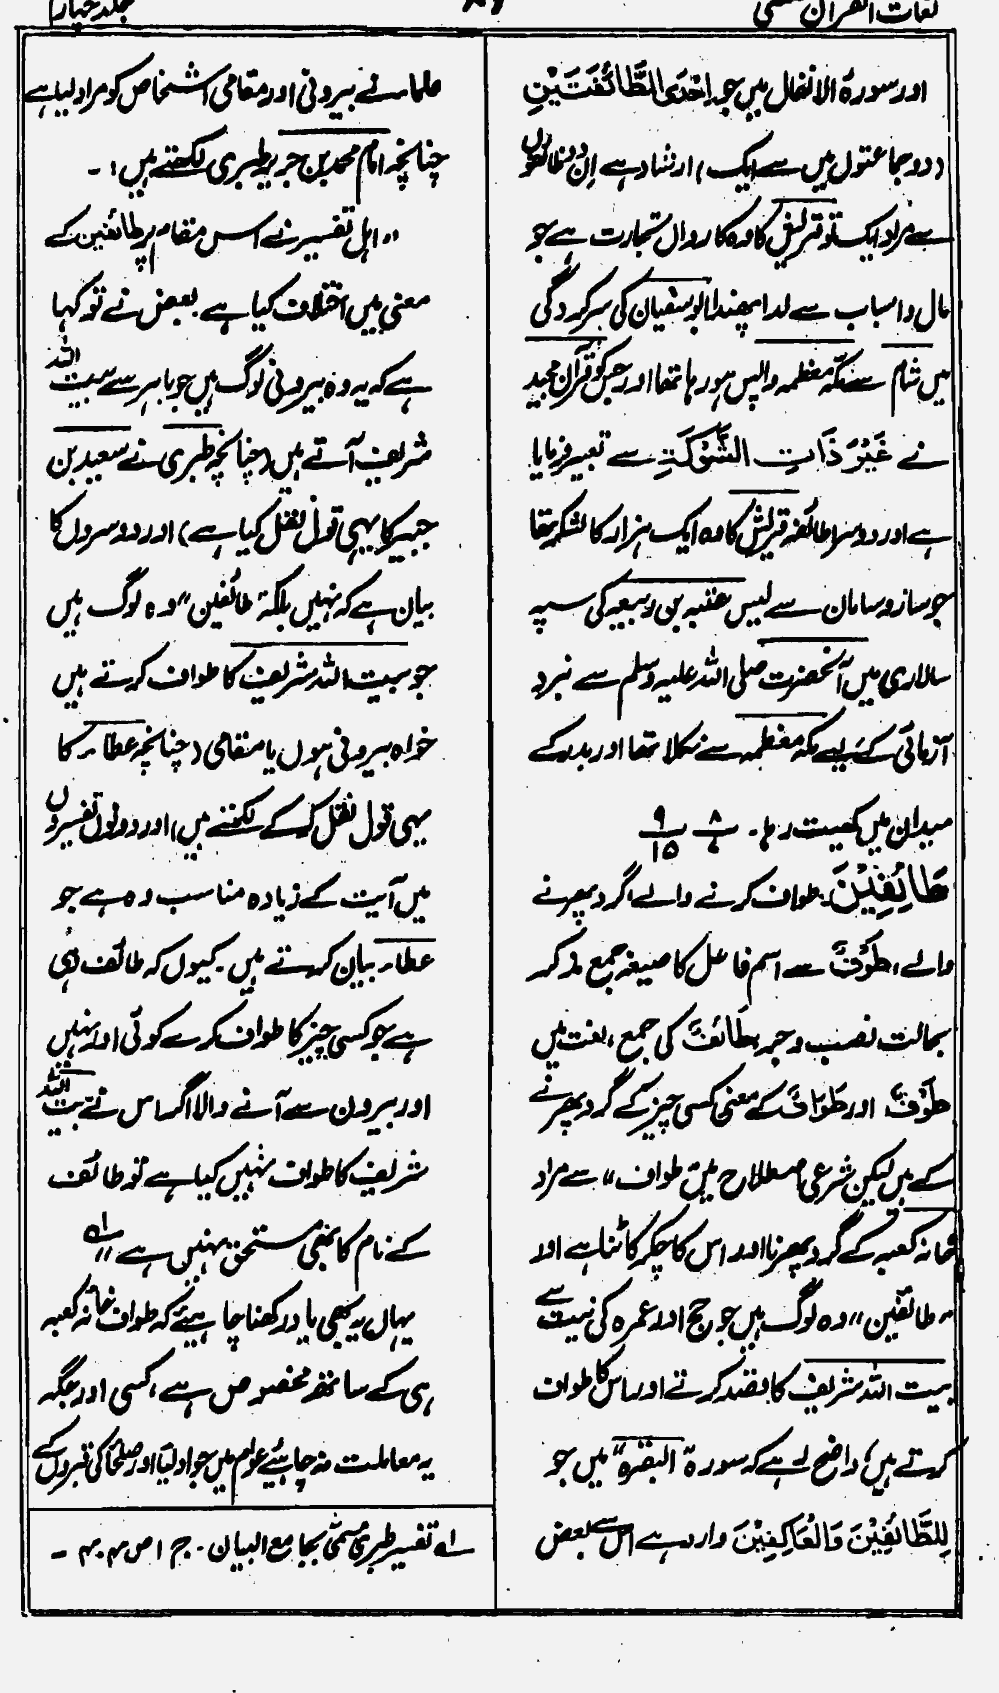 لغات القرآن
جلد چہارم
اور سورۃ الانفال میں جو اِحْدَی الطَّائِفَتَیْنِ
(دو جماعتوں میں سے ایک) ارشاد ہے اِن دو طائفوں
سے مراد ایک تو قریش کا وہ کاروانِ تجارت ہے جو
مال و اسباب سے لدا پھندا ابوسفیان کی سرکردگی
میں شام سے مکہ معظمہ واپس ہو رہا تھا اور جس کو قرآن مجید
نے غَیْرَ ذَاتِ الشَّوْکَۃِ سے تعبیر فرمایا
ہے اور دوسرا طائفہ قریش کا وہ ایک ہزار کا لشکر تھا
جو ساز و سامان سے لیس عتبہ بن ربیعہ کی سپہ
سالاری میں آنحضرت صلی اللہ علیہ وسلم سے نبرد
آزمائی کے لیے مکہ معظمہ سے نکلا تھا اور بدر کے
میدان میں کھیت رہا۔ ۸/۶ ۹/۱۵
طَائِفِیْنَ۔ طواف کرنے والے، گرد پھرنے
والے، طَوْفٌ سے اسم فاعل کا صیغہ جمع مذکر
بحالت نصب و جر، طَائِفٌ کی جمع، لغت میں
طَوْفٌ اور طَوَافٌ کے معنی کسی چیز کے گرد پھرنے
کے ہیں لیکن شرعی اصطلاح میں "طواف" سے مراد
خانہ کعبہ کے گرد پھرنا اور اس کا چکر کاٹنا ہے اور
"طائفین" وہ لوگ ہیں جو حج اور عمرہ کی نیت سے
بیت اللہ شریف کا قصد کرتے اور اس کا طواف
کرتے ہیں، واضح رہے کہ سورۃ "البقرہ" میں جو
لِلطَّائِفِیْنَ وَالْعَاکِفِیْنَ وارد ہے اس سے بعض
علماء نے بیرونی اور مقامی اشخاص کو مراد لیا ہے
چنانچہ امام محمد بن جریر طبری لکھتے ہیں:۔
"اہل تفسیر نے اس مقام پر طائفین کے
معنی میں اختلاف کیا ہے بعض نے تو کہا
ہے کہ یہ وہ بیرونی لوگ ہیں جو باہر سے بیت اللہ
شریف آتے ہیں (چنانچہ طبری نے سعید بن
جبیر کا یہی قول نقل کیا ہے) اور دوسروں کا
بیان ہے کہ نہیں بلکہ "طائفین" وہ لوگ ہیں
جو بیت اللہ شریف کا طواف کرتے ہیں
خواہ بیرونی ہوں یا مقامی (چنانچہ عطاء کا
یہی قول نقل کر کے لکھتے ہیں) اور دونوں تفسیروں
میں آیت کے زیادہ مناسب وہ ہے جو
عطاء بیان کرتے ہیں۔ کیوں کہ طائف وہی
ہے جو کسی چیز کا طواف کرے کوئی اور نہیں
اور بیرون سے آنے والا اگر اس نے بیت اللہ
شریف کا طواف نہیں کیا ہے تو طائف
کے نام کا بھی مستحق نہیں ہے" لہ
یہاں یہ بھی یاد رکھنا چاہیئے کہ طواف خانہ کعبہ
ہی کے ساتھ مخصوص ہے، کسی اور جگہ
یہ معاملت نہ چاہیئے عوام میں جو اولیاء اور صلحاء کی قبروں کے
لہ تفسیر طبری مسمّٰی بجامع البیان۔ ج ۱ ص ۴۰۴۔